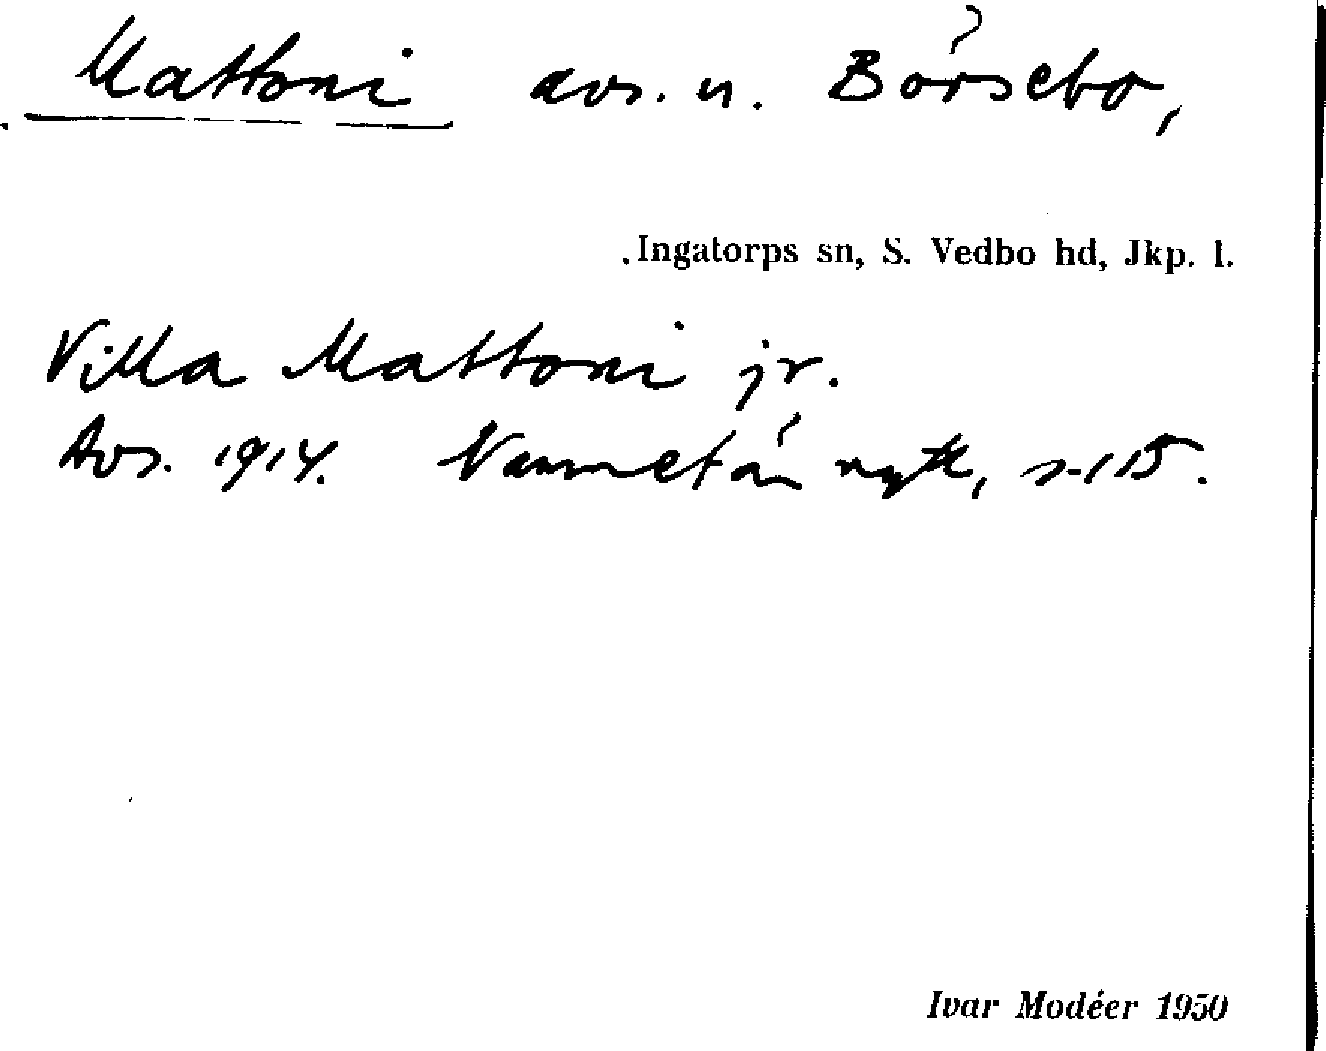 Mattoni avs. u. Börsebo,
Ingatorps sn, S. Vedbo hd, Jkp. l.
Villa Mattoni jr.
Avs. 1914. Namnet är nytt, s. 115.
Ivar Modéer 1950